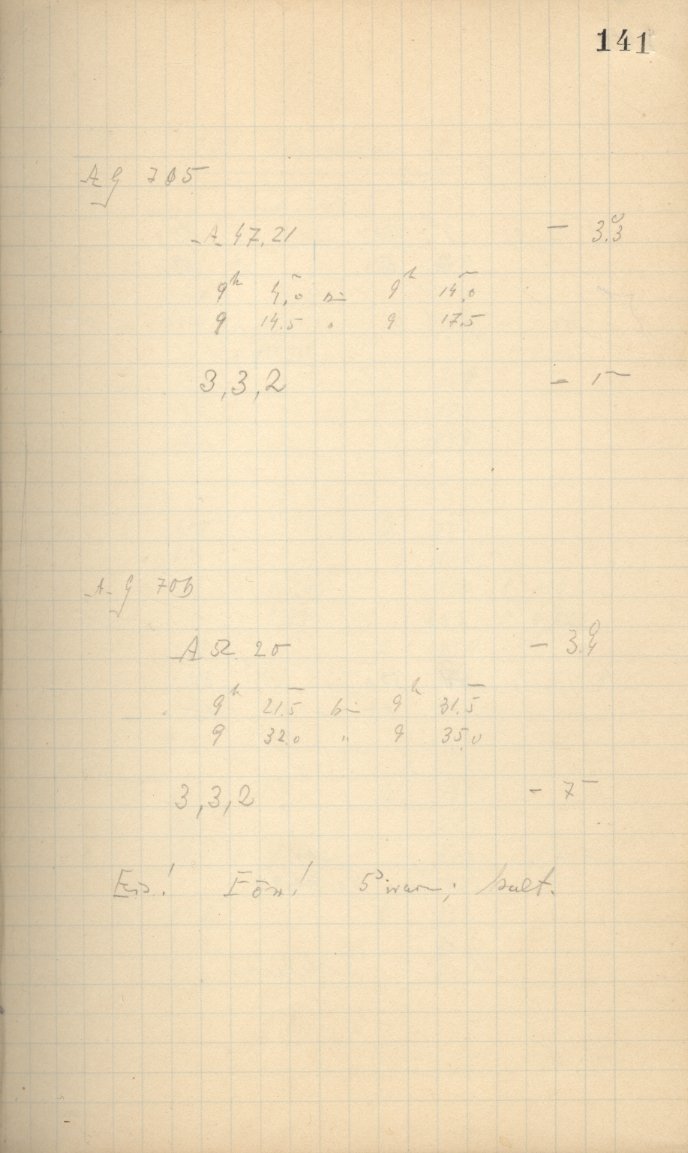 141
AG 705
A 47,21 - 3.°3
9h 4,0 bis 9h 14,0
9 14.5 " 9 17.5
3,3,2 - 1m
AG 706
A 52. 20 - 3.°4
9h 21.5 bis 9h 31.5
9 32.0 " 9 35.0
3,3,2 - 7m
Eis! Fön! 5° warm; kalt.